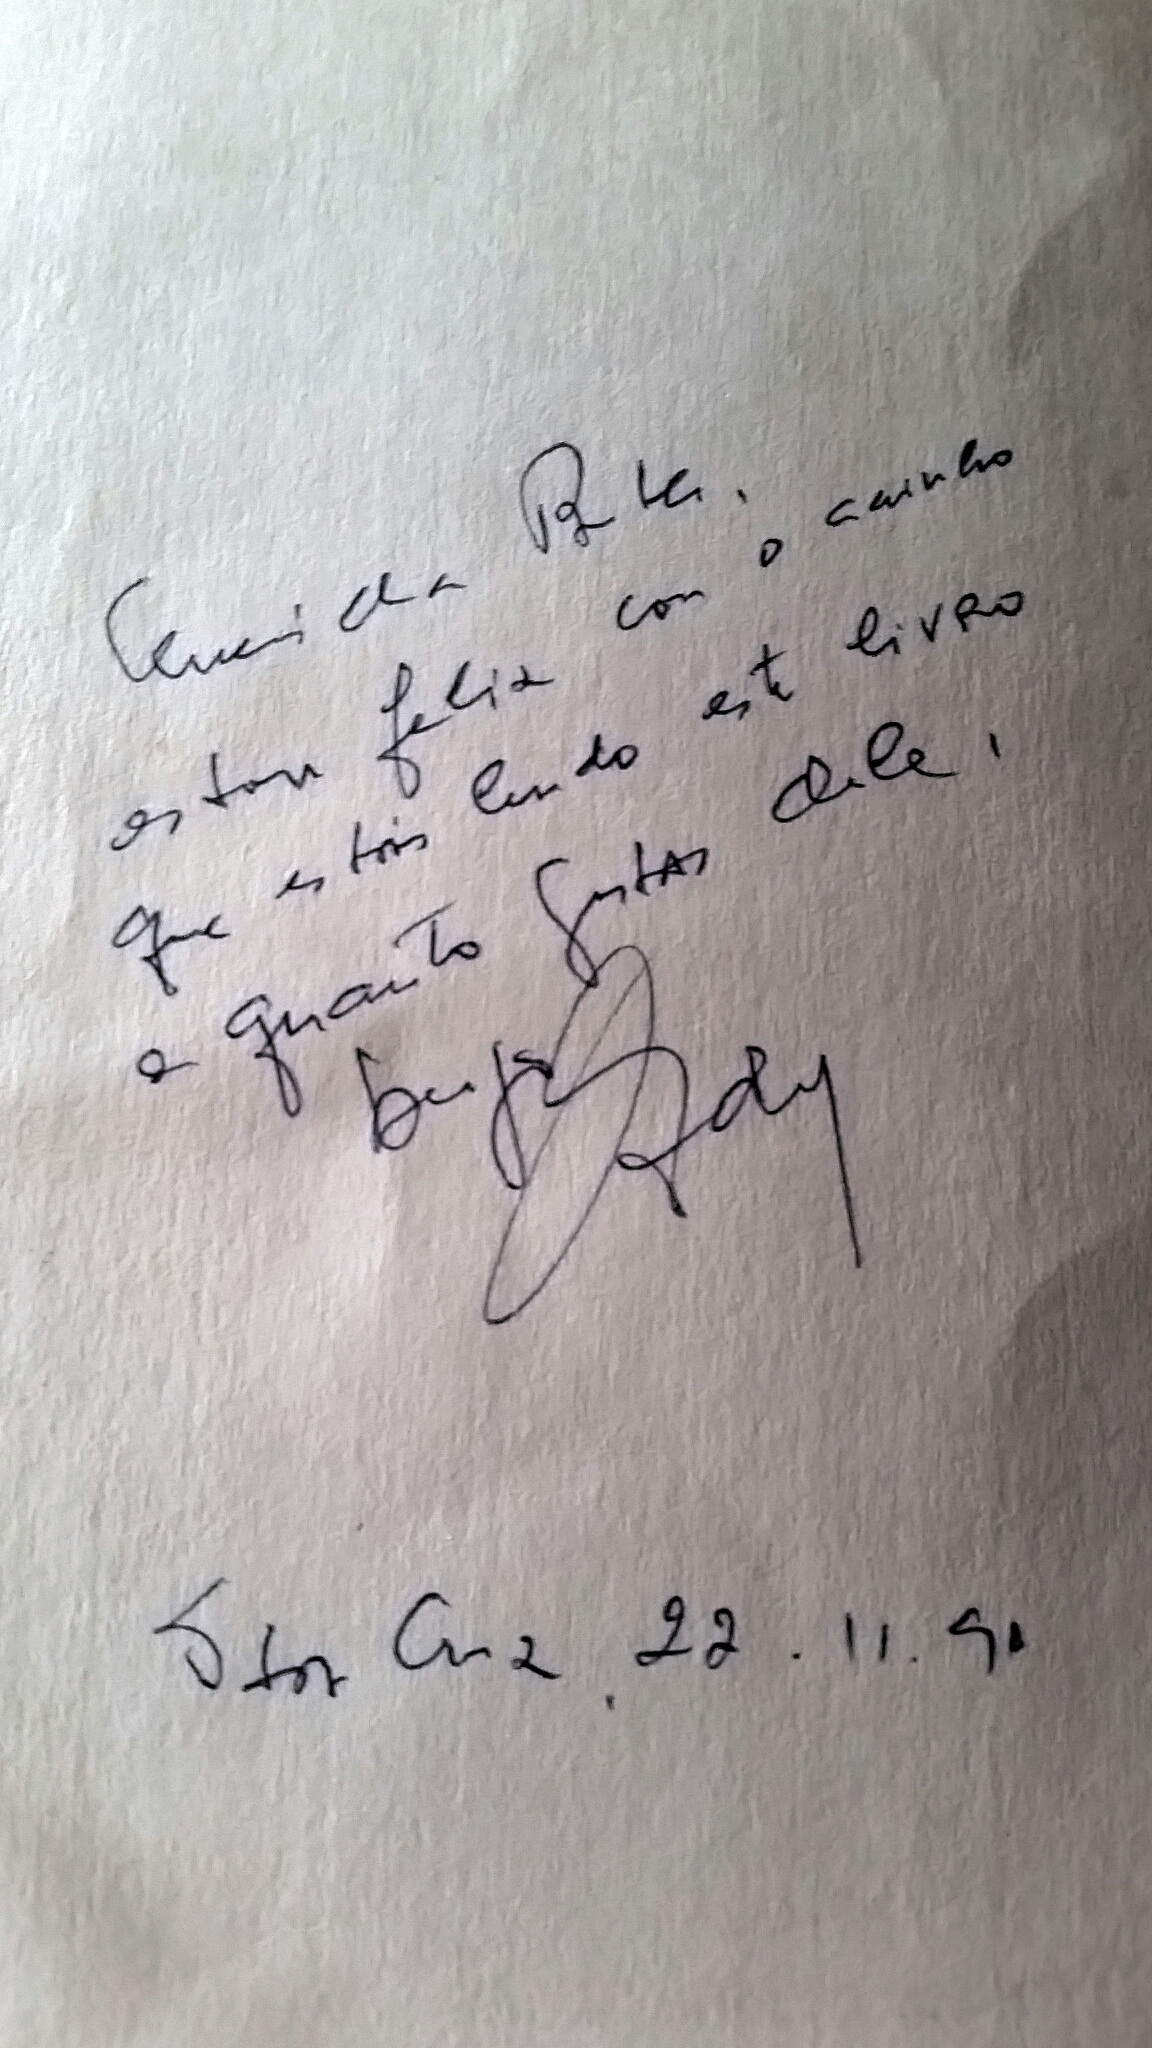 Querida
estou feliz com o carinho
que estás lendo este livro
e quanto gustas dele.
beijo
Sta Cruz, 22.11.